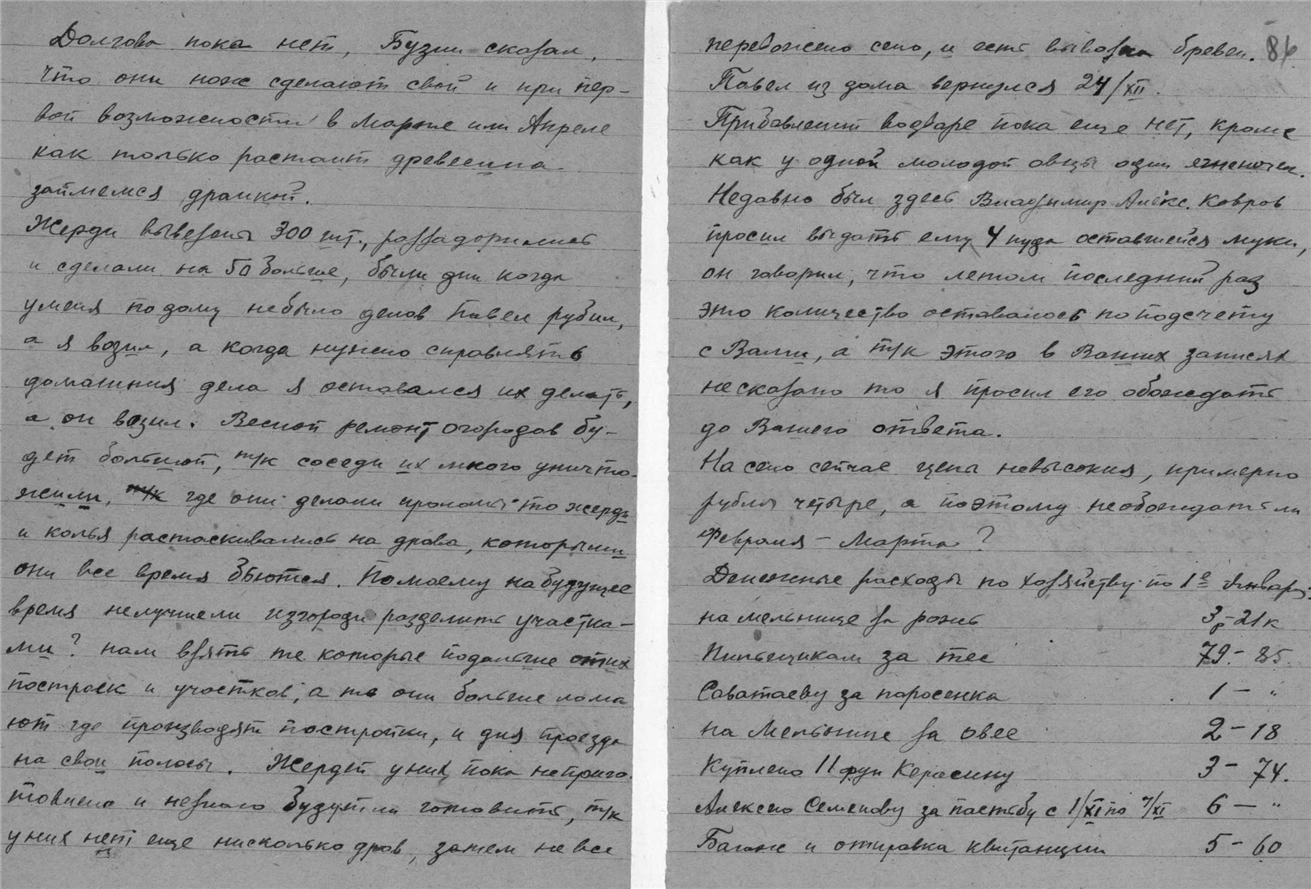 Долгова пока нет, Бузин сказал,
что они нож сделают свой и при пер-
вой возможности в Марте или Апреле
как только растает древесина
займемся дранкой.
Жерди вывезены 300 шт., раззадорились
и сделали на 50 больше, были дни когда
уменя подому небыло делов Павел рубил,
а я возил, а когда нужно справлять
домашния дела я оставался их делать,
а он возил. Весной ремонт огородов бу-
дет большой, т/к соседи их много уничто-
жили, т/к где они делали проломы то жерди
и колья растаскивались на дрова, которыми
они все время бьются. Помоему на будущее
время нелучшели изгороди разделить участка-
ми? нам взять те которые подальше от их
построек и участков, а то они больше лома
ют где производят постройки, и для проезда
на свои полосы. Жердей у них пока неприго
товлено и незнаю будутли готовить, т/к
у них нет еще нисколько дров, затем не все
перевожено сено, и есть вывозка бревен. 86
Павел из дома вернулся 24/XII.
Прибавлений водворе пока еще нет, кроме
как у одной молодой овцы один ягненочек.
Недавно был здесь Владимир Алекс. Ковров
просил выдать ему 4 пуда оставшейся муки,
он говорил, что летом последний раз
это количество оставалось по подсчету
с Вами, а т/к этого в Ваших записях
несказано то я просил его обождать
до Вашего ответа.
На сено сейчас цены невысокия, примерно
рубля четыре, а поэтому необождать ли
Февраля – Марта?
Денежные расходы по хозяйству по 1е Января:
на мельнице за рожь 3р-21к
Пильщикам за тес 79.- 85.
Саватаеву за поросенка 1 – "
на Мельнице за овес 2 – 18
Куплено 11 фун Керасину 3 – 74.
Алексею Семенову за пастьбу с 1/XI по 7/XI 6 – "
Багаж и отправка квитанции 5 – 60